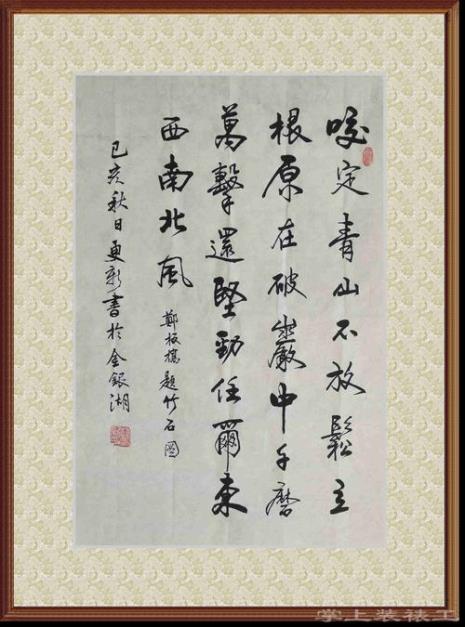 咬定青山不放鬆立
根原在破巖中千磨
萬擊還堅勁任爾東
西南北風
鄭板橋題竹石圖
己亥秋日更新書於金銀湖
掌上装裱工